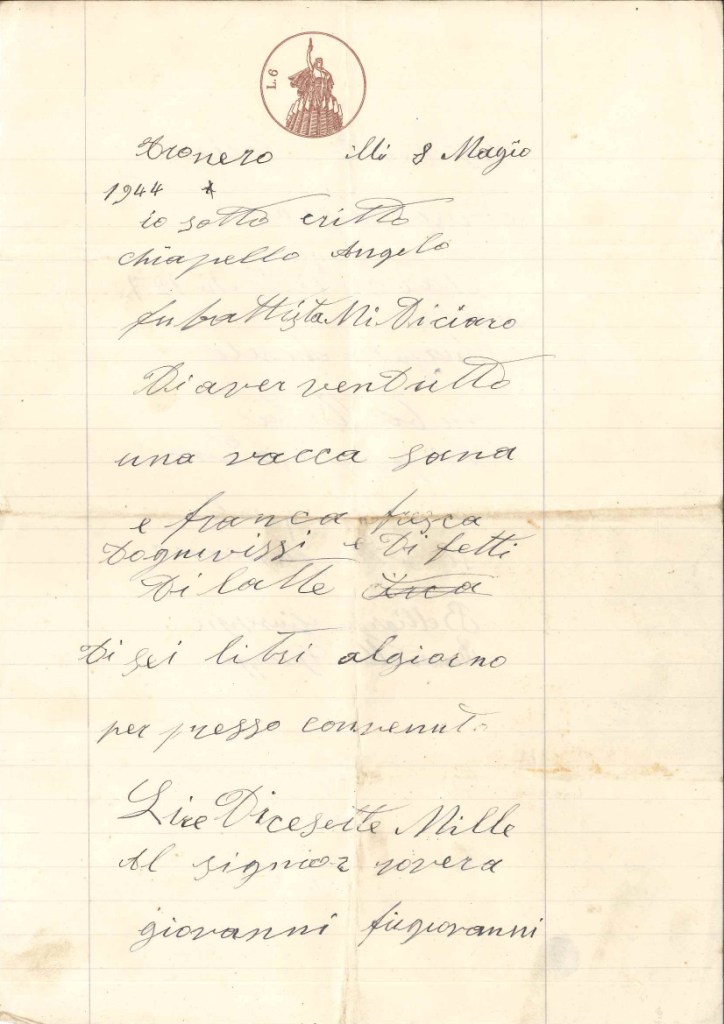 L. 6
Dronero illi 8 Magio
1944
io sotto critto
chiapello Angelo
fu battista Mi Diciaro
Di aver vendutto
una vacca sana
e franca fresca
Dognivissi e Di fetti
Di latte
Di sei litri al giorno
per presso convenuto
Lire Dicesette Mille
Al signior rovera
giovanni fu giovanni